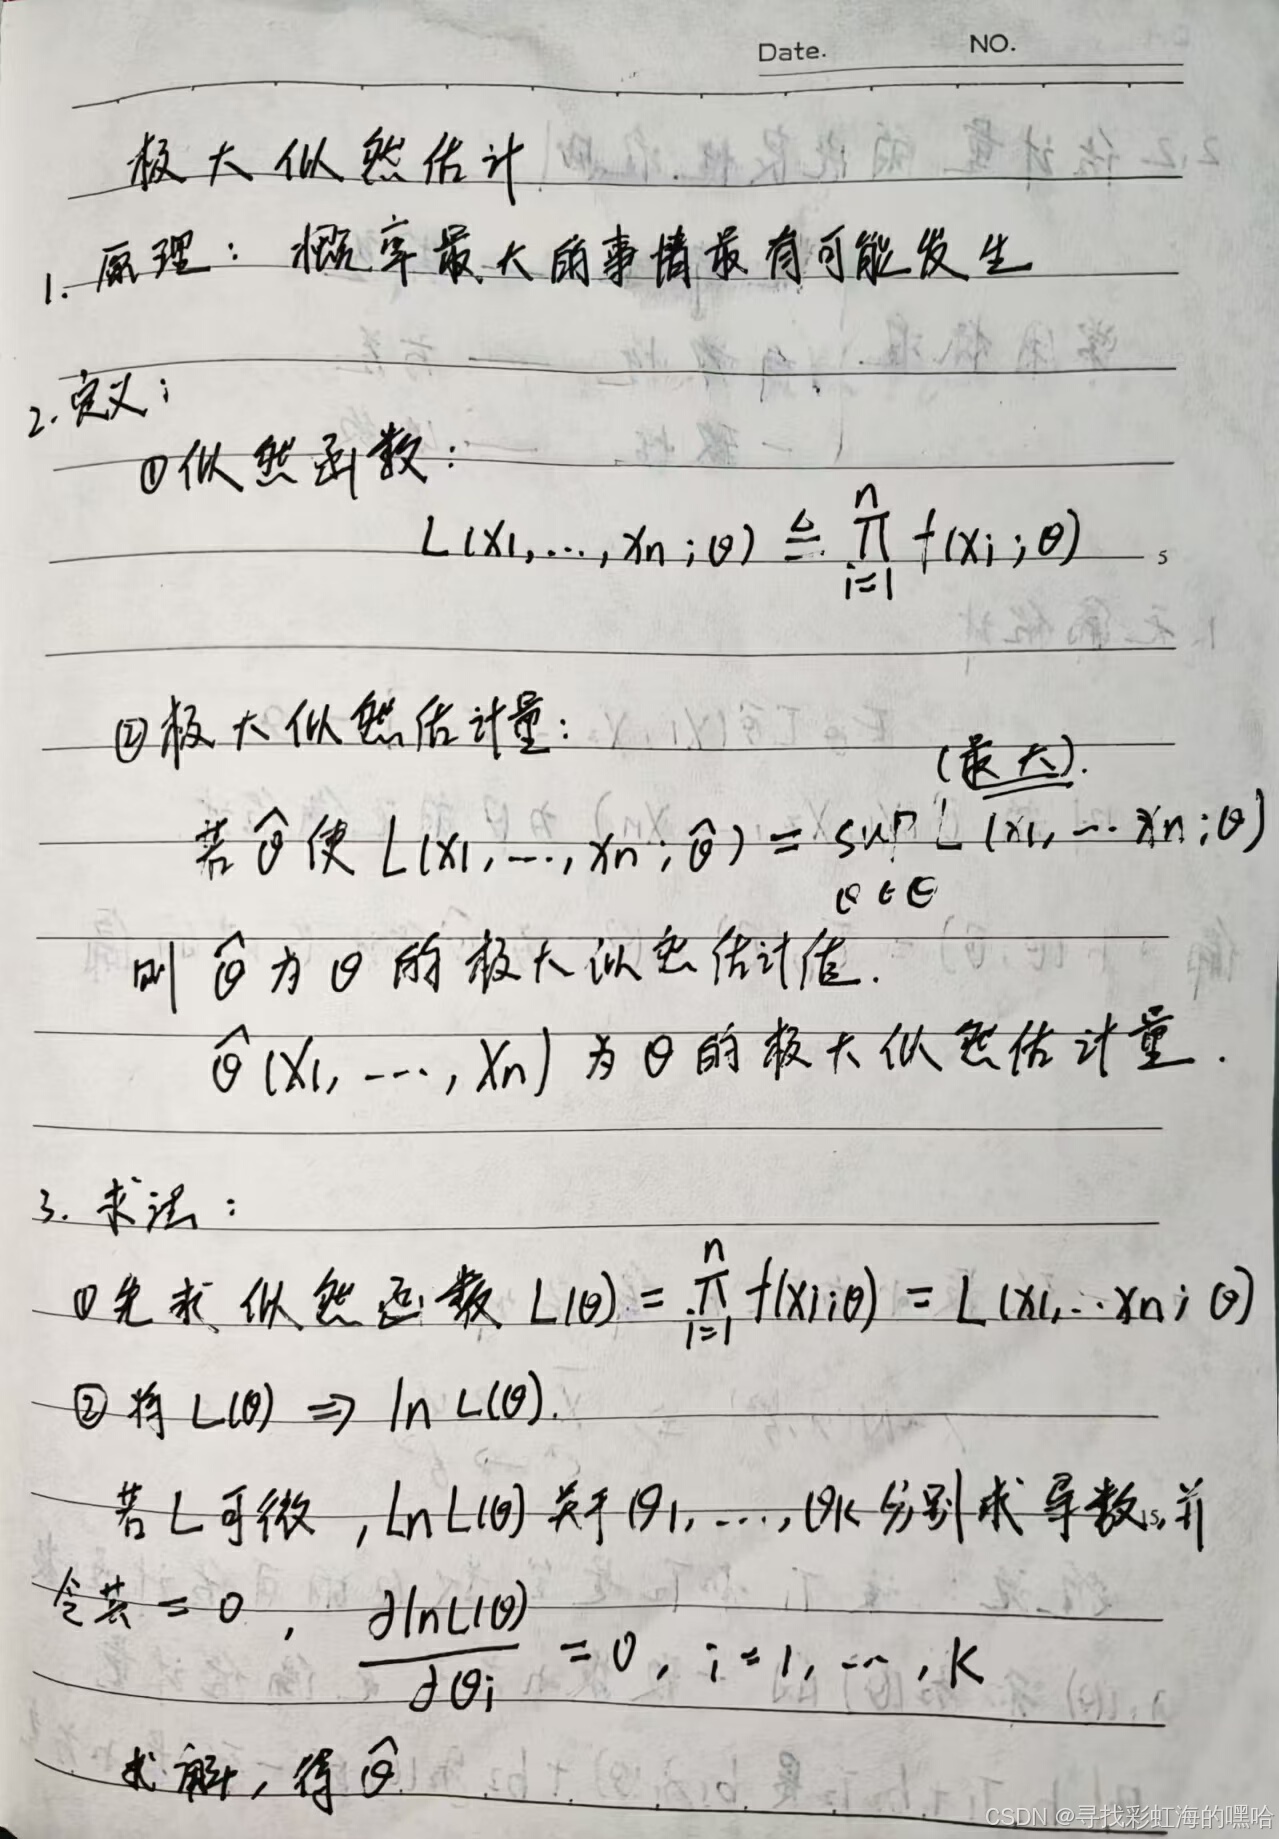 Date. NO.
极大似然估计
1. 原理：概率最大的事情最有可能发生
2. 定义：
①似然函数：
L(x1,...,xn;θ) ≜ ∏_{i=1}^{n} f(xi;θ)
②极大似然估计量：
(最大).
若 θ̂ 使 L(x1,...,xn;θ̂) = sup_{θ∈Θ} L(x1,...xn;θ)
则 θ̂ 为 θ 的极大似然估计值.
θ̂(X1,...,Xn) 为 θ 的极大似然估计量.
3. 求法：
①先求似然函数 L(θ) = ∏_{i=1}^{n} f(xi;θ) = L(x1,...xn;θ)
② 将 L(θ) ⇒ ln L(θ).
若 L 可微, Ln L(θ) 关于 θ1,...,θk 分别求导数, 并
令其 = 0, ∂lnL(θ)/∂θi = 0, i=1,...,k
求解, 得 θ̂
CSDN @寻找彩虹海的嘿哈